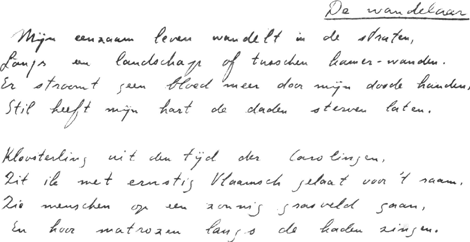 De wandelaar
Mijn eenzaam leven wandelt in de straten,
Langs een landschap of tusschen kamer-wanden.
Er stroomt geen bloed meer door mijn doode handen,
Stil heeft mijn hart de daden sterven laten.
Kloosterling uit den tijd der Carolingen,
Zit ik met ernstig Vlaamsch gelaat voor 't raam,
Zie menschen op een zonnig grasveld gaan,
En hoor matrozen langs de kaden zingen.